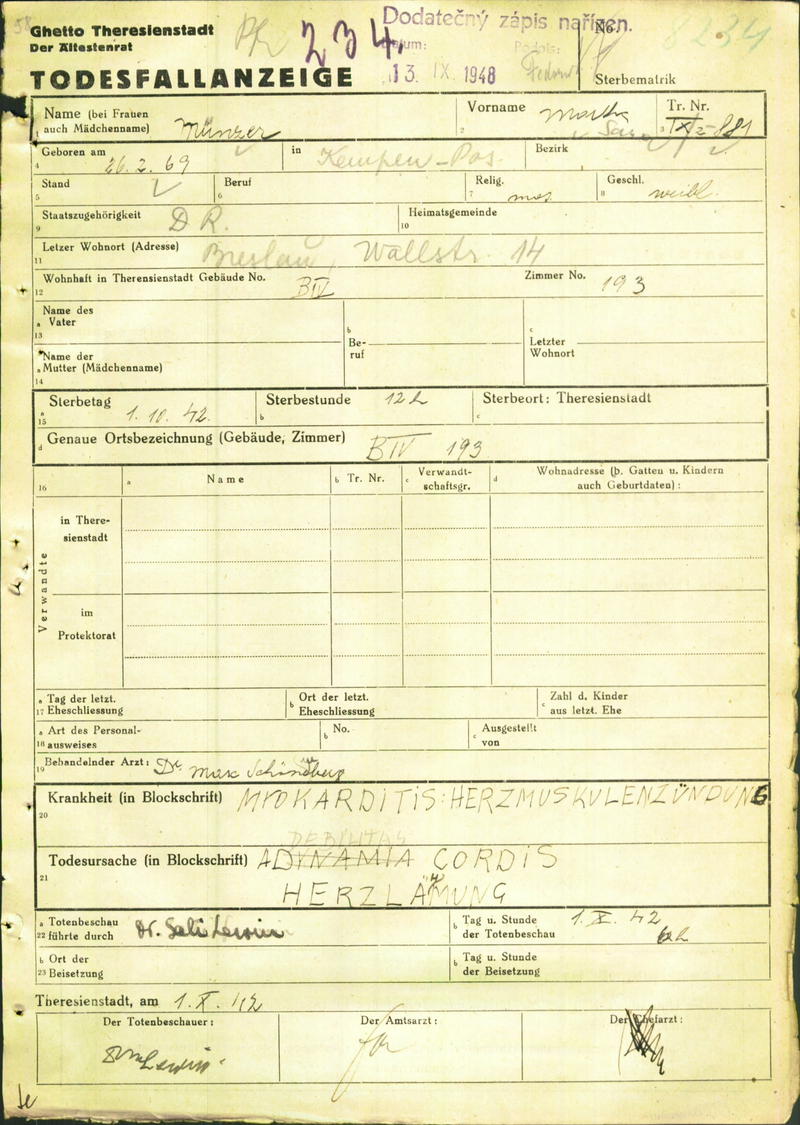 Ghetto Theresienstadt
Der Ältestenrat
TODESFALLANZEIGE
234
Dodatečný zápis nařízen.
Datum: Podpis:
13. IX. 1948
No.
8234
Sterbematrik
Name (bei Frauen auch Mädchenname) Münzer
Vorname Martha Sara
Tr. Nr. IX/2-881
Geboren am 26.2.69
in Kempen-Pos.
Bezirk
Stand
Beruf
Relig. mos.
Geschl. weibl.
Staatszugehörigkeit D R.
Heimatsgemeinde
Letzer Wohnort (Adresse) Breslau, Wallstr. 14
Wohnhaft in Theresienstadt Gebäude No. BIV
Zimmer No. 193
Name des Vater
Name der Mutter (Mädchenname)
Beruf
Letzter Wohnort
Sterbetag 1.10.42.
Sterbestunde 12 h
Sterbeort: Theresienstadt
Genaue Ortsbezeichnung (Gebäude, Zimmer) BIV 193
Name
Tr. Nr.
Verwandtschaftsgr.
Wohnadresse (b. Gatten u. Kindern auch Geburtdaten):
Verwandte
in Theresienstadt
im Protektorat
Tag der letzt. Eheschliessung
Ort der letzt. Eheschliessung
Zahl d. Kinder aus letzt. Ehe
Art des Personalausweises
No.
Ausgestellt von
Behandelnder Arzt: Dr. Max
Krankheit (in Blockschrift) MYOKARDITIS: HERZMUSKULENZÜNDUNG
DEBILITAS
Todesursache (in Blockschrift) ADYNAMIA CORDIS
HERZLÄMUNG
Totenbeschau führte durch Dr.
Tag u. Stunde der Totenbeschau 1.X.42
Ort der Beisetzung
Tag u. Stunde der Beisetzung
Theresienstadt, am 1.X.42
Der Totenbeschauer:
Der Amtsarzt:
Der Chefarzt: